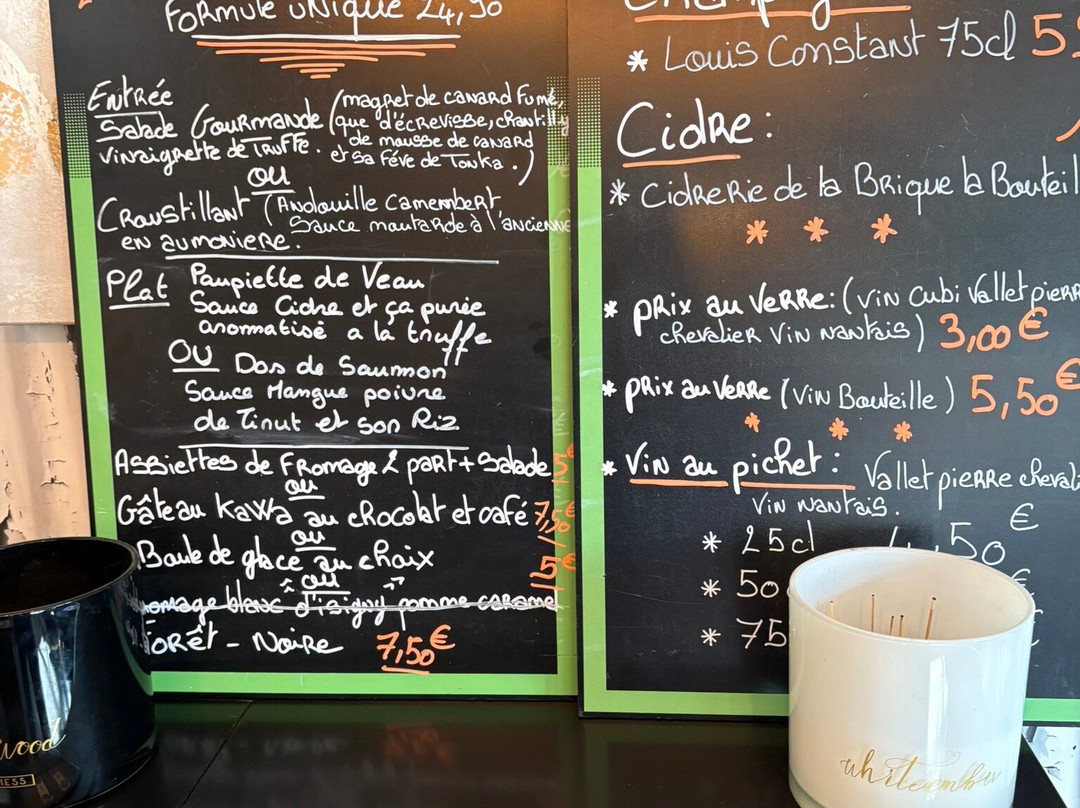 FORMULE UNIQUE 24,90
Entrée
Salade Gourmande (magret de canard Fumé,
que d'écrevisse, chantilly
de mousse de canard
et sa Féve de Tonka.)
vinaigrette de Truffe.
ou
Croustillant (Andouille Camembert
Sauce moutarde à l'ancienne
en aumoniere.
Plat Paupiette de Veau
Sauce Cidre et ça purée
aromatisé a la truffe
OU Dos de Saumon
Sauce Mangue poivre
de Timut et son Riz
Assiettes de Fromage 2 part + Salade 5€
ou
Gâteau Kawa au chocolat et café 7,50€
ou
Boule de glace au choix 5€
ou
romage blanc d'isigny pomme caramel
Forêt - Noire 7,50€
Louis Constant 75cl
Cidre:
* Cidrerie de la Brique la Bouteil
* prix au Verre: (vin Cubi Vallet pierre
chevalier Vin nantais) 3,00€
* prix au Verre (Vin Bouteille) 5,50€
* Vin au pichet: Vallet pierre cheval
Vin nantais.
€
* 25cl 4,50
* 50 €
* 75
wood
NESS